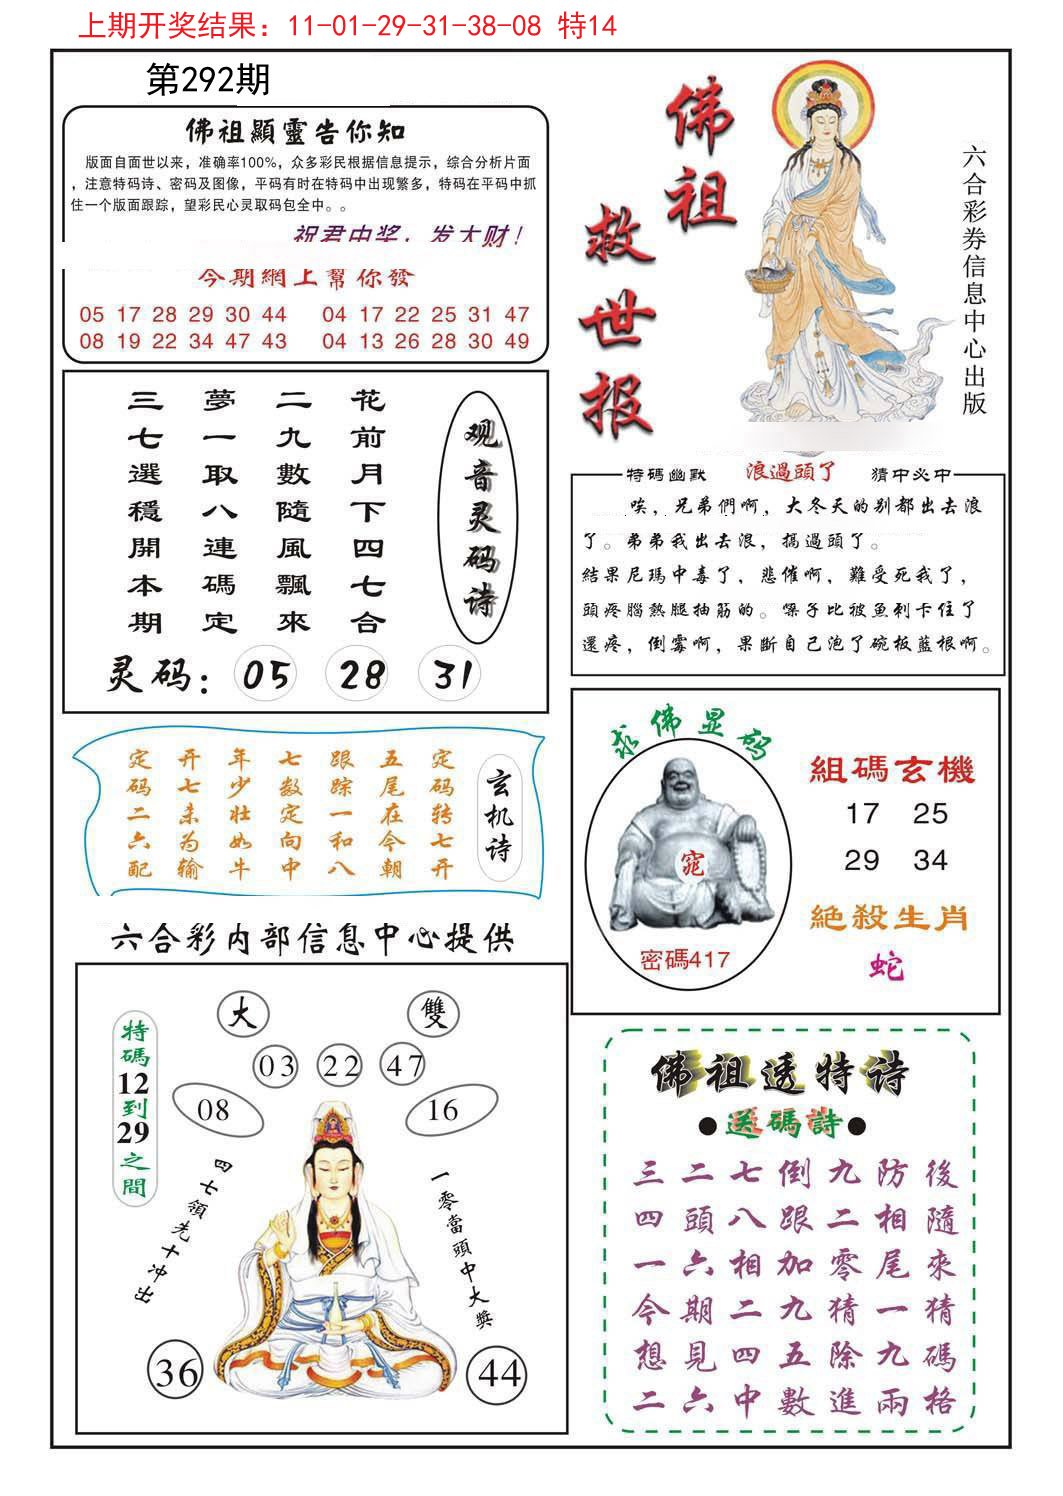 上期开奖结果：11-01-29-31-38-08 特14
第292期
佛祖顯靈告你知
版面自面世以来，准确率100%，众多彩民根据信息提示，综合分析片面
，注意特码诗、密码及图像，平码有时在特码中出现繁多，特码在平码中抓
住一个版面跟踪，望彩民心灵取码包全中。。
祝君中奖，发大财！
今期網上幫你發
05 17 28 29 30 44 04 17 22 25 31 47
08 19 22 34 47 43 04 13 26 28 30 49
佛祖
救世报
六合彩券信息中心出版
观音灵码诗
花前月下四七合
二九數隨風飄來
夢一取八連碼定
三七選穩開本期
灵码：05 28 31
特碼幽默 浪過頭了 猜中必中
唉，兄弟們啊，大冬天的别都出去浪
了。弟弟我出去浪，搞過頭了。
結果尼瑪中毒了，悲催啊，難受死我了，
頭疼腦熱腿抽筋的。嗓子比被魚刺卡住了
還疼，倒霉啊，果斷自己泡了碗板藍根啊。
玄机诗
定码转七开
五尾在今朝
跟踪一和八
七数定向中
年少壮如牛
开七未为输
定码二六配
求佛显码
窕
密碼417
組碼玄機
17 25
29 34
絶殺生肖
蛇
六合彩内部信息中心提供
大 雙
03 22 47
08 16
特碼12到29之間
四七領先十冲出
一零當頭中大獎
36 44
佛祖透特诗
●送碼詩●
三二七倒九防後
四頭八跟二相隨
一六相加零尾來
今期二九猜一猜
想見四五除九碼
二六中數進兩格